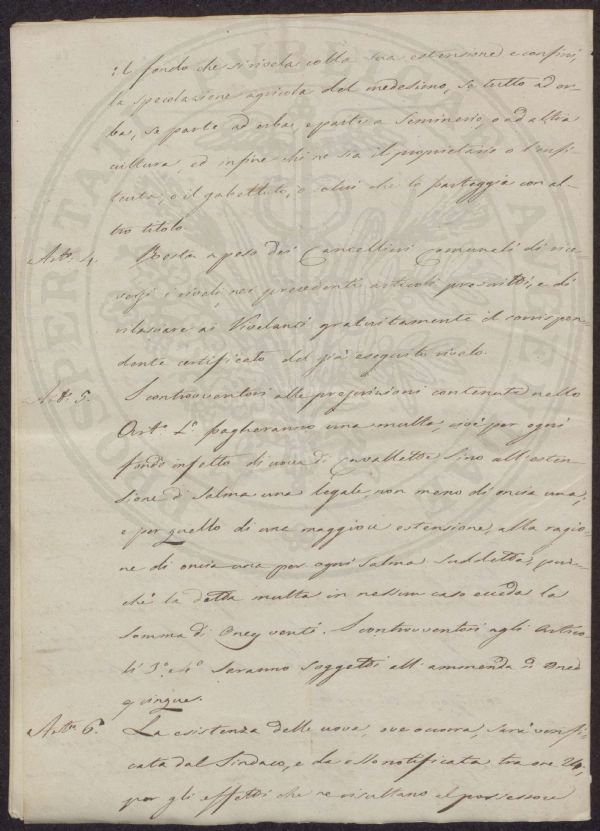 il fondo che si rivela colla sua estensione e confini,
la speculazione agricola del medesimo, se tutto ad er-
ba, se parte ad erba, e parte a Seminerio, o ad altra
cultura, ed infine chi ne sia il proprietario o l'enfi-
teuta, o il gabelluto, o altri che lo parteggia con al-
tro titolo.
Art. 4. Resta a peso dei Cancellieri Comunali di rice-
versi i riveli, nei precedenti articoli prescritti, e di
rilasciare ai Rivelanti gratuitamente il corrispon-
dente certificato del già eseguito rivelo.
Art. 5. I controventori alle prescrizioni contenute nello
Art.° 2.° pagheranno una multa, cioè per ogni
fondo infetto di uova di Cavallette sino all'esten-
sione di Salma una legale, non meno di oncia una;
e per quello di una maggiore estensione, alla ragio-
ne di oncia una per ogni Salma suddetta, pur-
chè la detta multa in nessun caso ecceda la
Somma di Oncy venti. I controventori agli Artico-
li 3.° e 4.° saranno soggetti all'ammenda di Once
quinque.
Art. 6. La esistenza delle uova, ove occorra, sarà verifi-
cata dal Sindaco, e da esso notificata tra ore 24,
per gli effetti che ne risultano al possessore